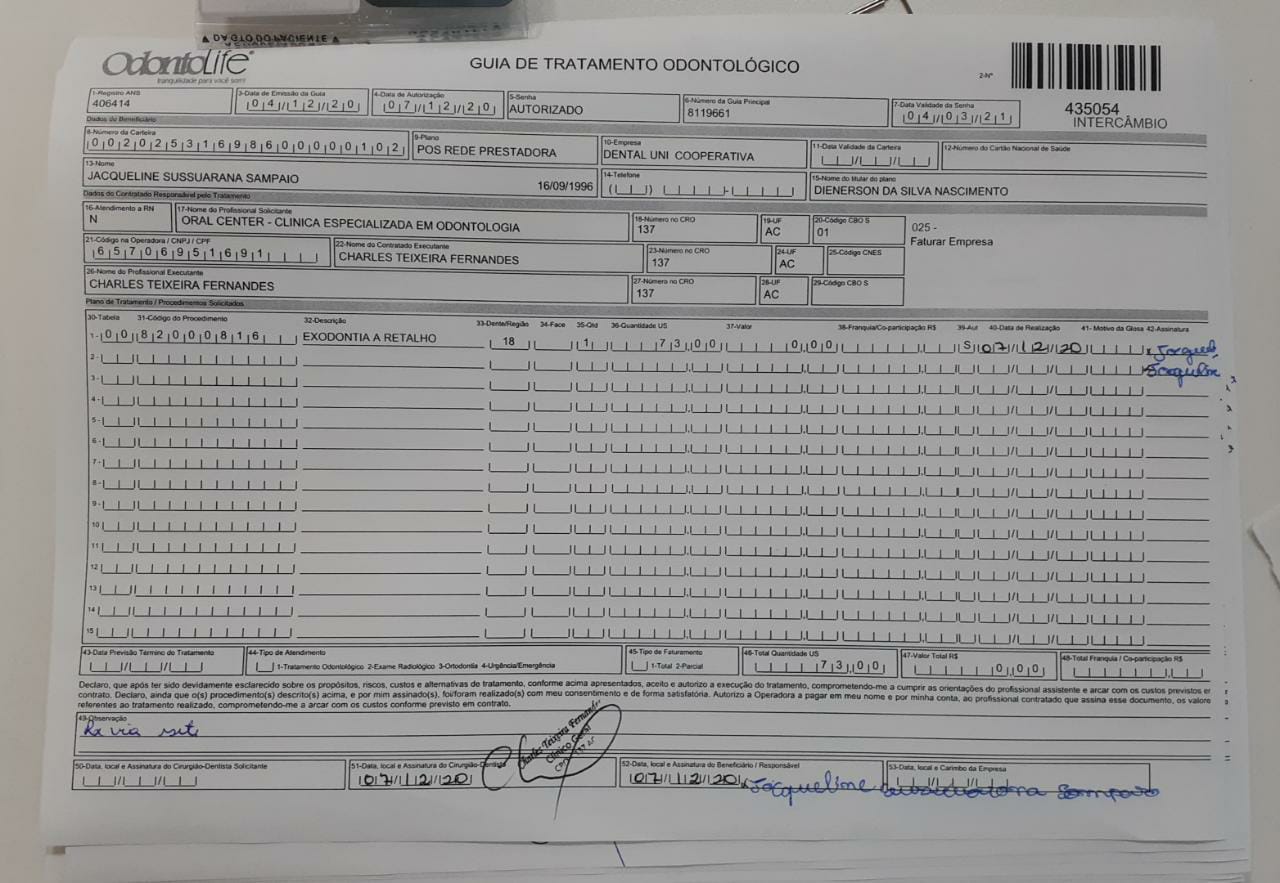 OdontoLife®
tranquilidade para você sorrir
GUIA DE TRATAMENTO ODONTOLÓGICO
2-Nº
435054
INTERCÂMBIO
1-Registro ANS
406414
3-Data de Emissão da Guia
04/12/20
4-Data de Autorização
07/12/20
5-Senha
AUTORIZADO
6-Número da Guia Principal
8119661
7-Data Validade da Senha
04/03/21
Dados do Beneficiário
8-Número da Carteira
00202531698600000102
9-Plano
POS REDE PRESTADORA
10-Empresa
DENTAL UNI COOPERATIVA
11-Data Validade da Carteira
12-Número do Cartão Nacional de Saúde
13-Nome
JACQUELINE SUSSUARANA SAMPAIO 16/09/1996
14-Telefone
15-Nome do titular do plano
DIENERSON DA SILVA NASCIMENTO
Dados do Contratado Responsável pelo Tratamento
16-Atendimento a RN
N
17-Nome do Profissional Solicitante
ORAL CENTER - CLINICA ESPECIALIZADA EM ODONTOLOGIA
18-Número no CRO
137
19-UF
AC
20-Código CBO S
01
025 -
Faturar Empresa
21-Código na Operadora / CNPJ / CPF
65706951691
22-Nome do Contratado Executante
CHARLES TEIXEIRA FERNANDES
23-Número no CRO
137
24-UF
AC
25-Código CNES
26-Nome do Profissional Executante
CHARLES TEIXEIRA FERNANDES
27-Número no CRO
137
28-UF
AC
29-Código CBO S
Plano de Tratamento / Procedimentos Solicitados
30-Tabela 31-Código do Procedimento 32-Descrição 33-Dente/Região 34-Face 35-Qtd 36-Quantidade US 37-Valor 38-Franquia/Co-participação R$ 39-Aut 40-Data de Realização 41- Motivo da Glosa 42-Assinatura
1- 00 82000816 EXODONTIA A RETALHO 18 1 73,00 0,00 S 07/12/20
2-
3-
4-
5-
6-
7-
8-
9-
10
11
12
13
14
15
43-Data Previsão Término do Tratamento
44-Tipo de Atendimento
1-Tratamento Odontológico 2-Exame Radiológico 3-Ortodontia 4-Urgência/Emergência
45-Tipo de Faturamento
1-Total 2-Parcial
46-Total Quantidade US
73,00
47-Valor Total R$
0,00
48-Total Franquia / Co-participação R$
Declaro, que após ter sido devidamente esclarecido sobre os propósitos, riscos, custos e alternativas de tratamento, conforme acima apresentados, aceito e autorizo a execução do tratamento, comprometendo-me a cumprir as orientações do profissional assistente e arcar com os custos previstos er
contrato. Declaro, ainda que o(s) procedimento(s) descrito(s) acima, e por mim assinado(s), foi/foram realizado(s) com meu consentimento e de forma satisfatória. Autorizo a Operadora a pagar em meu nome e por minha conta, ao profissional contratado que assina esse documento, os valore
referentes ao tratamento realizado, comprometendo-me a arcar com os custos conforme previsto em contrato.
49-Observação
Rx via site
Charles Teixeira Fernandes
Clínico Geral
50-Data, local e Assinatura do Cirurgião-Dentista Solicitante
51-Data, local e Assinatura do Cirurgião-Dentista
07/12/20
52-Data, local e Assinatura do Beneficiário / Responsável
07/12/20 Jacqueline
53-Data, local e Carimbo da Empresa